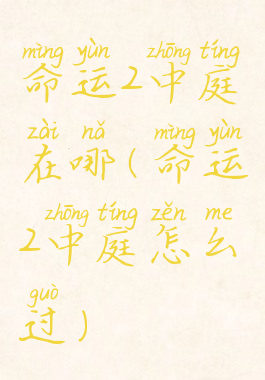 mìng yùn zhōng tíng
命运2中庭
zài nǎ mìng yùn
在哪(命运
zhōng tíng zěn me
2中庭怎么
guò
过)